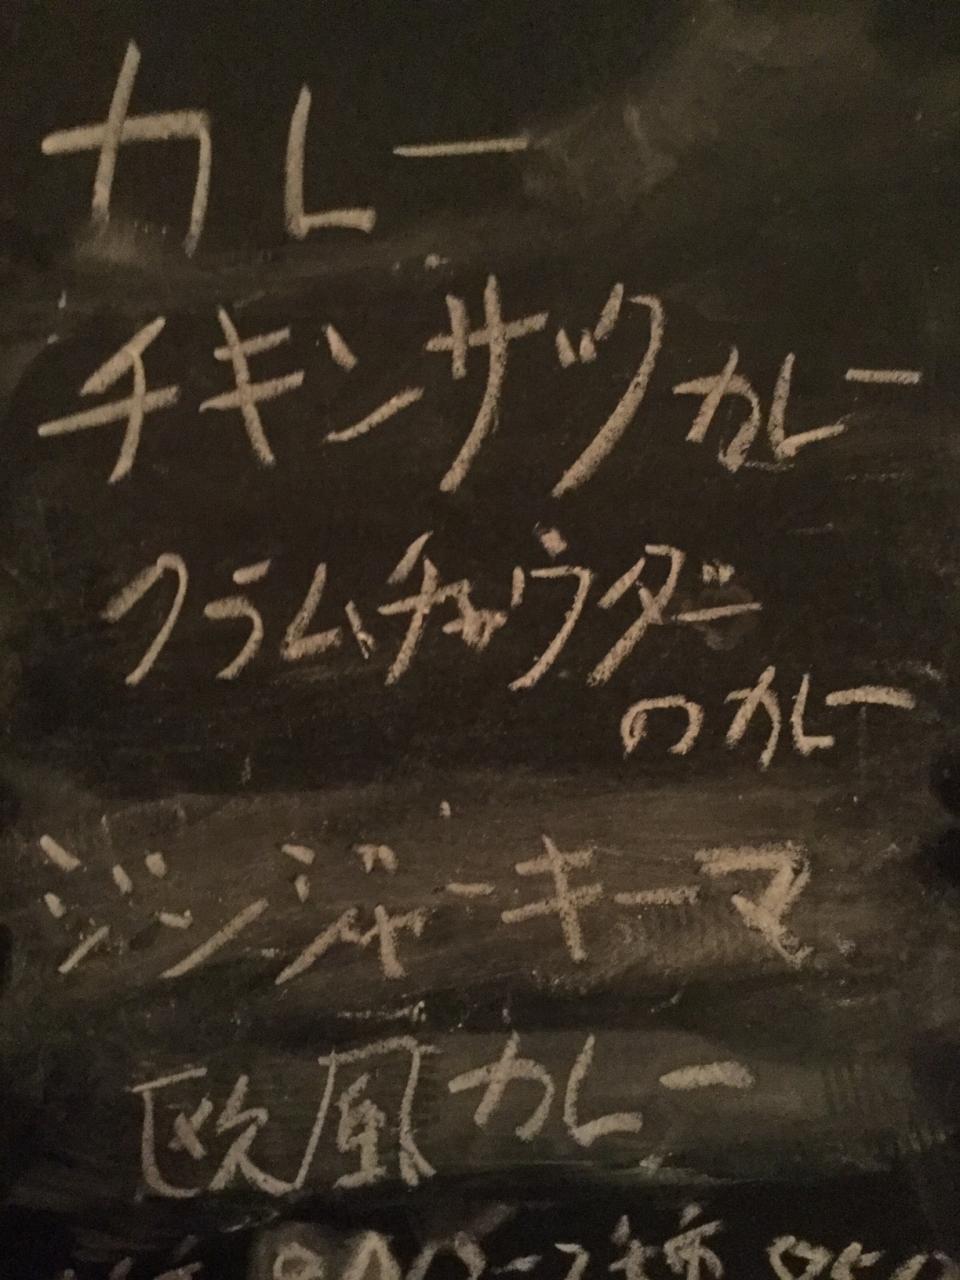 カレー
チキンサックカレー
フラムチャウダー
のカレー
ジンジャーキーマ
欧風カレー